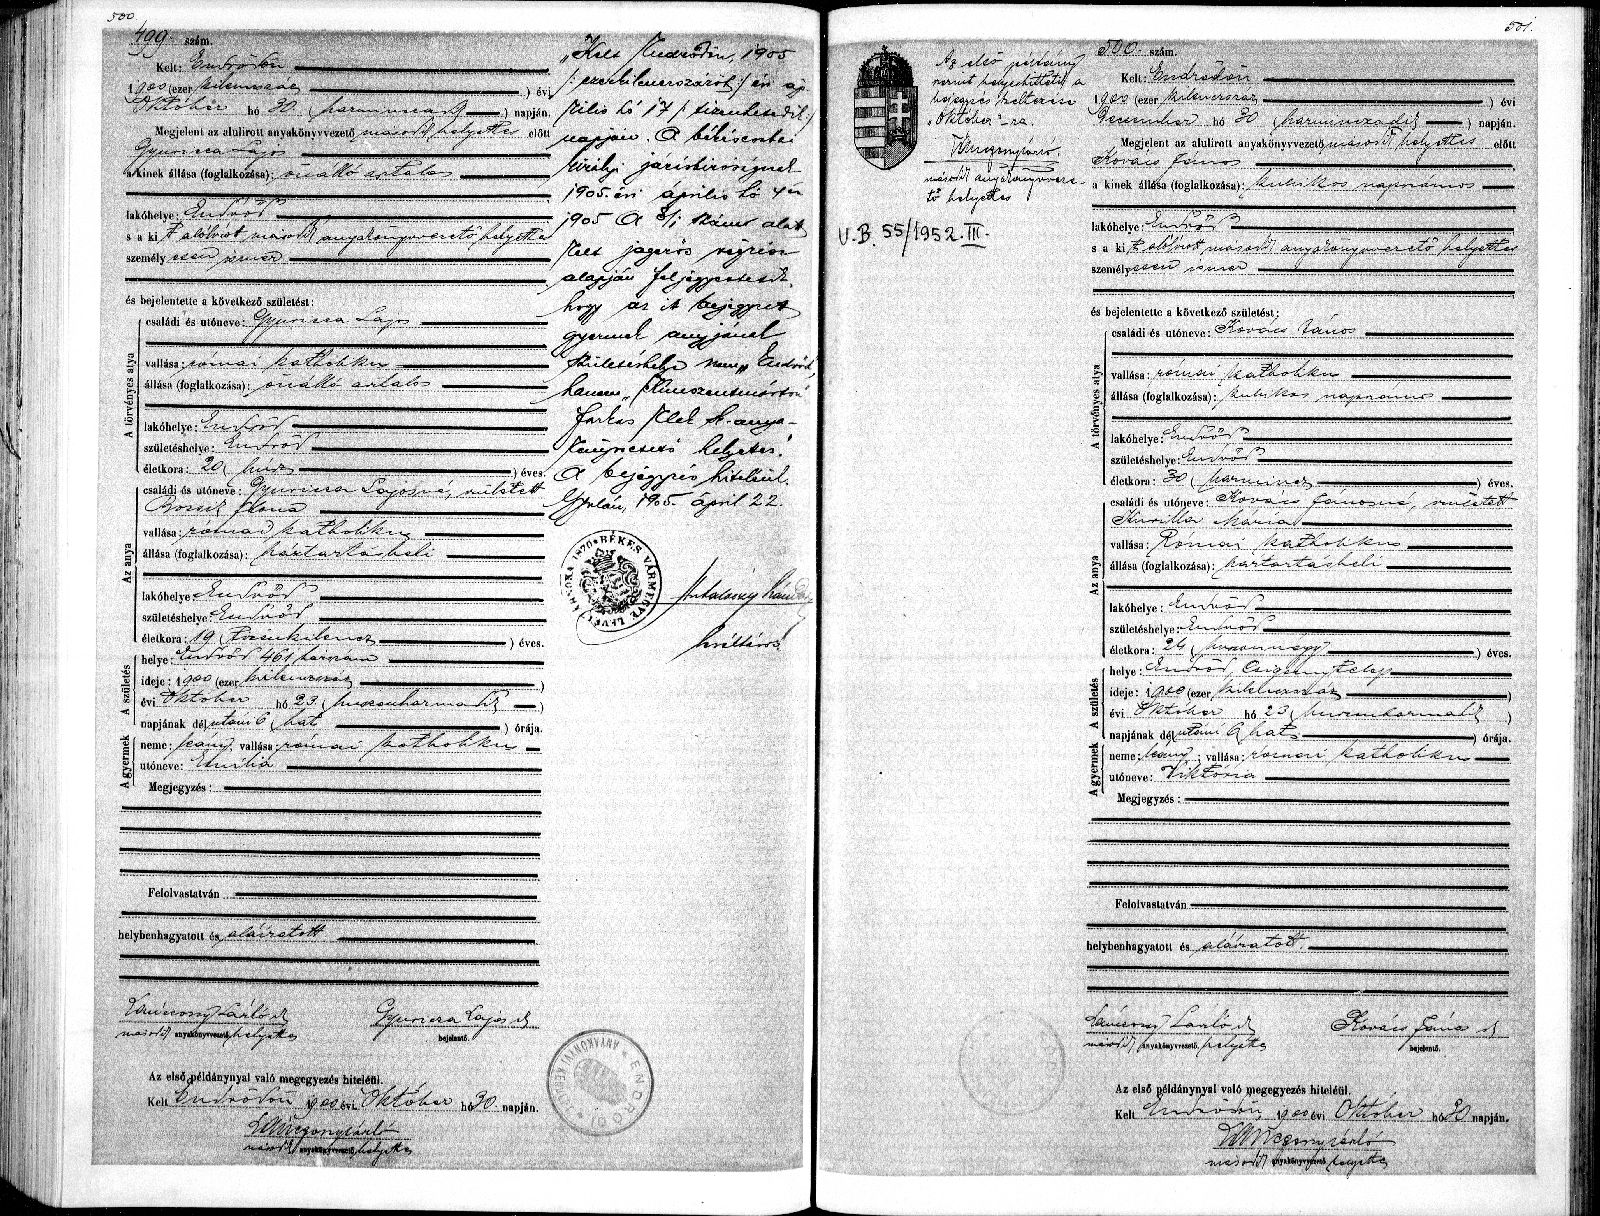 500
499 szám.
Kelt: Endrődön
1900 (ezer kilencszáz ) évi
Október hó 30 (harmincadik) napján.
Megjelent az alulirott anyakönyvvezető másod helyettes előtt
Gyuricza Lajos
a kinek állása (foglalkozása): önálló
lakóhelye: Endrőd
s a ki t alólirott másod anyakönyvvezető helyettes
személyesen ismer
és bejelentette a következő születést:
A törvényes atya
családi és utóneve: Gyuricza Lajos
vallása: római katholikus
állása (foglalkozása): önálló
lakóhelye: Endrőd
születéshelye: Endrőd
életkora: 20 (húsz ) éves.
Az anya
családi és utóneve: Gyuricza Lajosné, született
vallása: római katholikus
állása (foglalkozása): háztartásbeli
lakóhelye: Endrőd
születéshelye: Endrőd
életkora: 19 (tizenkilencz ) éves.
A születés
helye: Endrőd 461 házszám
ideje: 1900 (ezer kilencszáz )
évi Október hó 23 (huszonharmadik )
napjának délutáni 6 (hat ) órája.
A gyermek
neme: leány, vallása: római katholikus
utóneve: Emilia
Megjegyzés:
Felolvastatván
helybenhagyatott és aláiratott
másod anyakönyvvezető helyettes
Gyuricza Lajos
bejelentő.
Az első példánynyal való megegyezés hiteléül.
Kelt Endrődön 1900 évi Október hó 30 napján.
másod anyakönyvvezető helyettes
"Kelt Endrődön, 1905
/: ezerkilencszázöt :/ évi áp-
rilis hó 17 / tizenhetedik :/
napján. A békéscsabai
királyi járásbiróságnak
1905. évi április hó 4 én
1905 szám alatt
kelt jogerős végzése
alapján feljegyeztetik,
hogy az itt bejegyzett
gyermek anyjának
születéshelye nem „Endrőd,
hanem „Kunszentmárton"
Farkas Elek h. anya-
könyvvezető helyettes."
A bejegyzés hiteléül.
Gyulán, 1905. April 22.
BÉKÉS VÁRMEGYE LEVÉLTÁRNOKA 1870
levéltárnok
ENDRŐDI ANYAKÖNYVI KERÜLET
501.
Az első példány
szerint helyesbittetik a
bejegyzés keltezése
„Október"-ra.
másod anyakönyvveze-
tő helyettes
V.B. 55/1952. III.
500 szám.
Kelt: Endrődön
1900 (ezer kilencszáz ) évi
December hó 30 (harminczadik ) napján.
Megjelent az alulirott anyakönyvvezető másod helyettes előtt
Kovács János
a kinek állása (foglalkozása): kubikos napszámos
lakóhelye: Endrőd
s a ki t alólirott másod anyakönyvvezető helyettes
személyesen ismer
és bejelentette a következő születést:
A törvényes atya
családi és utóneve: Kovács János
vallása: római katholikus
állása (foglalkozása): kubikos napszámos
lakóhelye: Endrőd
születéshelye: Endrőd
életkora: 30 (harmincz ) éves.
Az anya
családi és utóneve: Kovács Jánosné, született
Mária
vallása: Római katholikus
állása (foglalkozása): háztartásbeli
lakóhelye: Endrőd
születéshelye: Endrőd
életkora: 24 (huszonnégy ) éves.
A születés
helye: Endrőd telep
ideje: 1900 (ezer kilencszáz )
évi Október hó 23 (huszonharmadik )
napjának délutáni 6 (hat ) órája.
A gyermek
neme: leány; vallása: római katholikus
utóneve: Viktória
Megjegyzés:
Felolvastatván
helybenhagyatott és aláiratott.
másod anyakönyvvezető helyettes
Kovács János
bejelentő.
Az első példánynyal való megegyezés hiteléül.
Kelt Endrődön 1900 évi Október hó 30 napján.
másod anyakönyvvezető helyettes